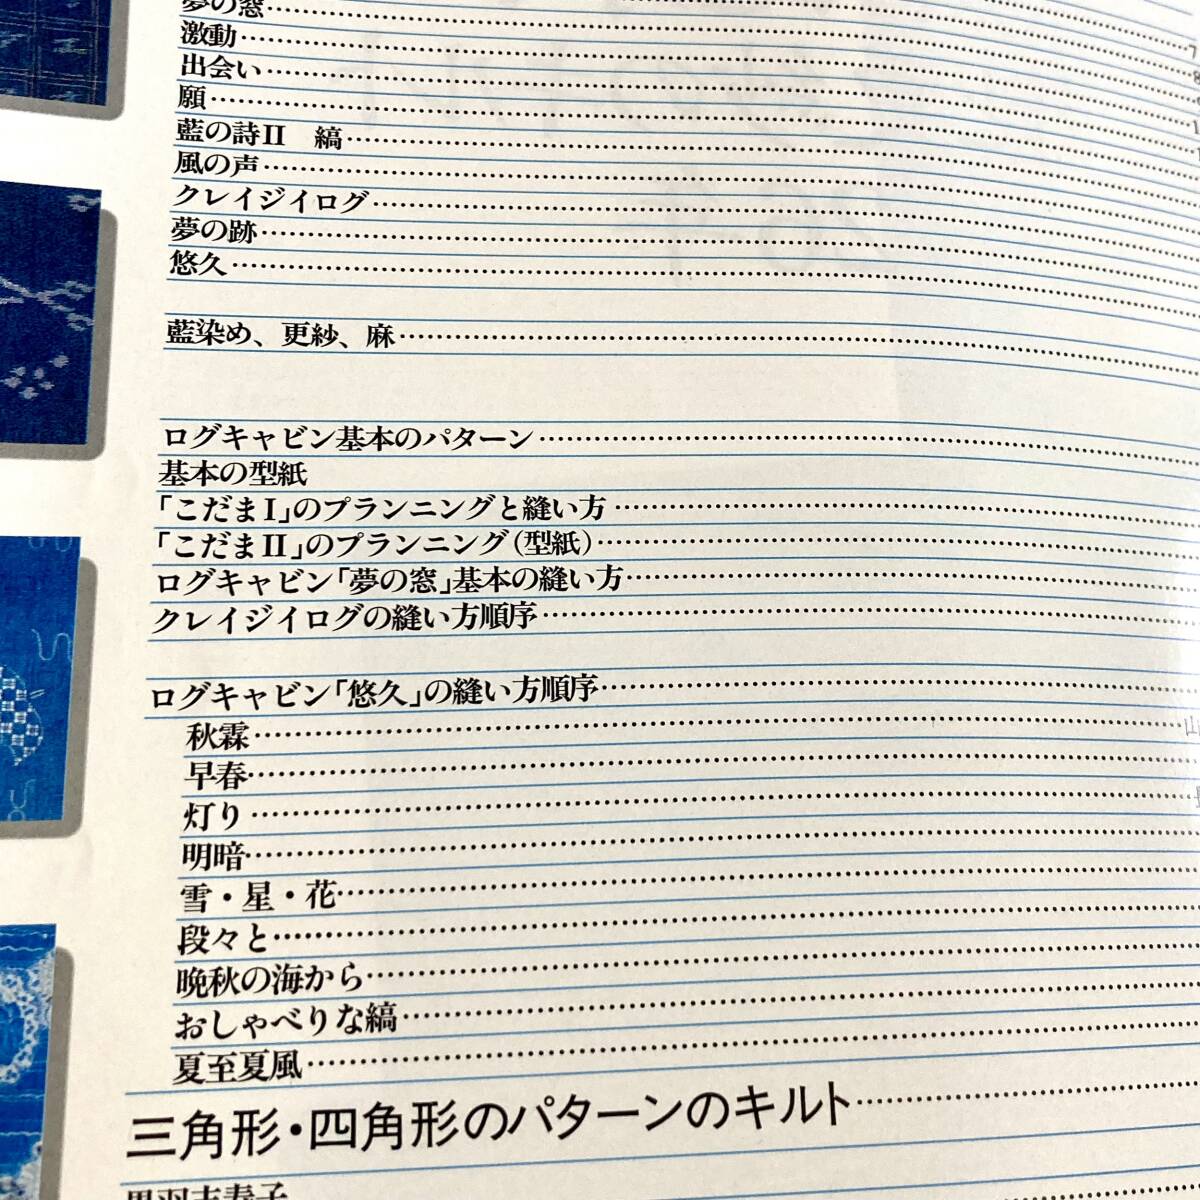 夢の窓
激動
出会い
願
藍の詩II　縞
風の声
クレイジイログ
夢の跡
悠久
藍染め、更紗、麻
ログキャビン基本のパターン
基本の型紙
「こだまI」のプランニングと縫い方
「こだまII」のプランニング(型紙)
ログキャビン「夢の窓」基本の縫い方
クレイジイログの縫い方順序
ログキャビン「悠久」の縫い方順序
秋霖
早春
灯り
明暗
雪・星・花
段々と
晩秋の海から
おしゃべりな縞
夏至夏風
三角形・四角形のパターンのキルト
黒羽志寿子